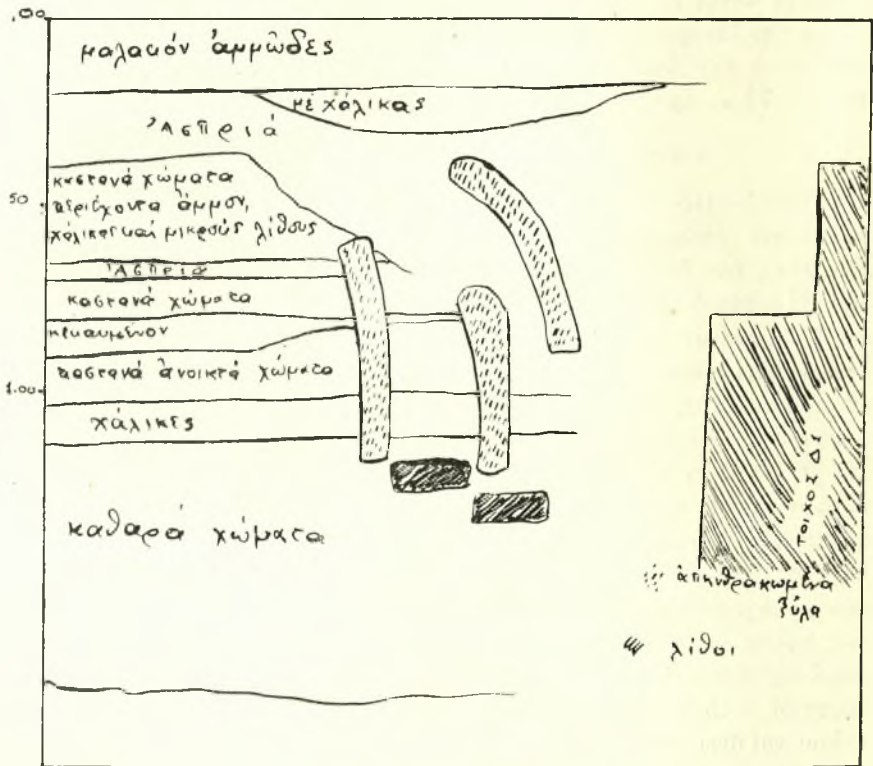 ,00
μαλακόν ἀμμῶδες
μὲ χάλικας
Ἀσπριά
καστανά χώματα
περιέχοντα ἄμμον,
χάλικας καί μικρούς λίθους
50
Ἀσπριά
καστανά χώματα
κεκαυμένον
καστανά ἀνοικτά χώματα
1.00
χάλικες
καθαρά χώματα
ΤΟΙΧΟΣ ΔΕ
ἀπηνθρακωμένα
ξύλα
λίθοι